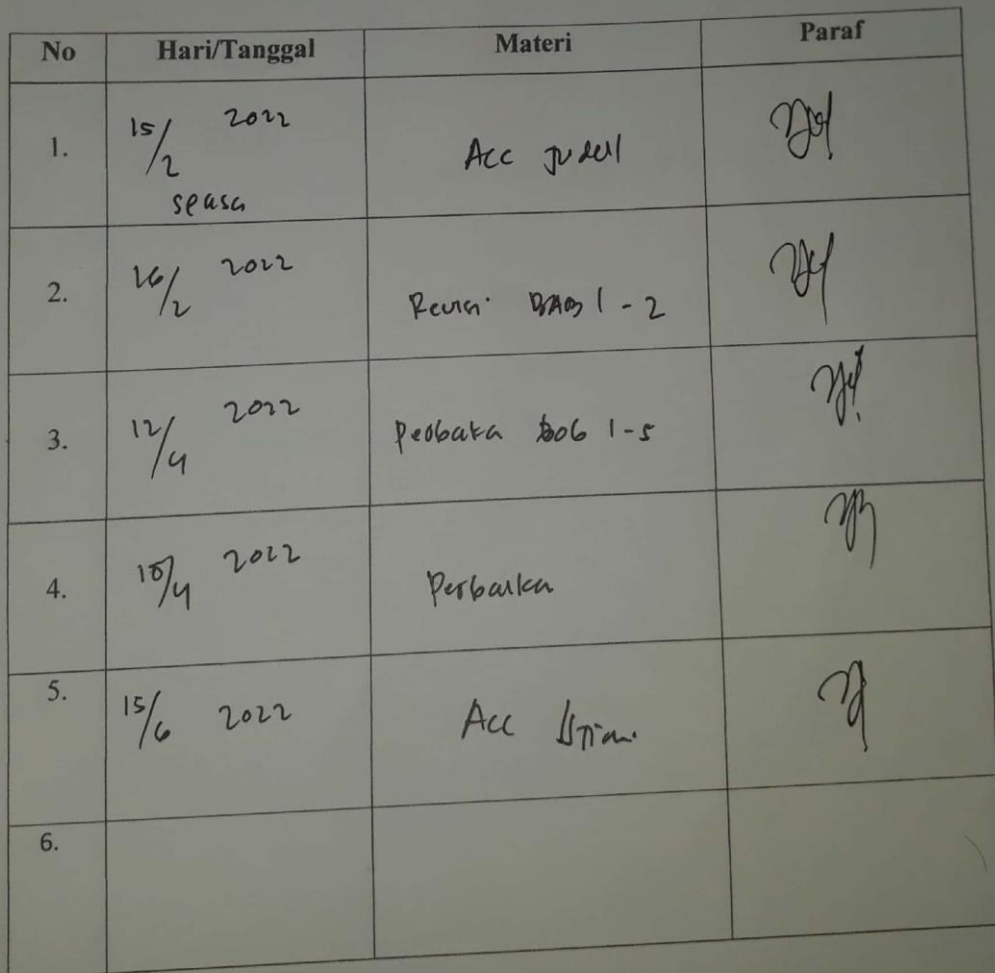 No Hari/Tanggal Materi Paraf
1. 15/2 2022 Acc judul
selasa
2. 16/2 2022 Revisi BAB 1 - 2
3. 12/4 2022 bab 1-5
4. 2022 Perbaika
5. 15/6 2022 Acc Ujian
6.